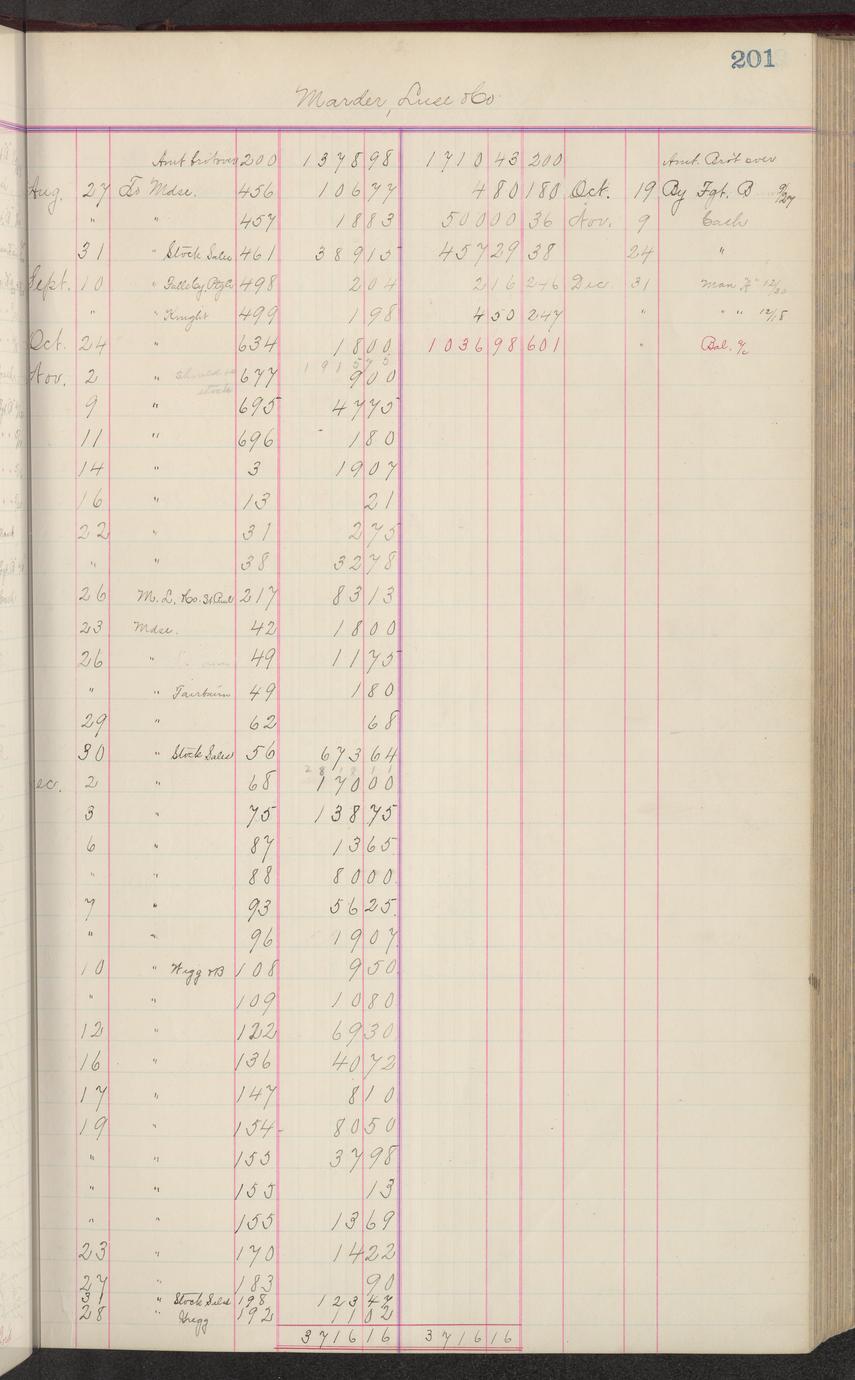 201
Marder, Luse & Co
Amt brt over 200 1378 98 1710 43 200 Amt. Brot over
Aug. 27 To Mdse. 456 106 77 4 80 180 Oct. 19 By Fgt. B 9/27
" " 457 18 83 500 00 36 Nov. 9 Cash
31 " Stock Sales 461 389 15 457 29 38 24 "
Sept. 10 " 498 2 04 2 16 246 Dec. 31 12/30
" " Knight 499 1 98 4 50 247 " " " 12/18
Oct. 24 " 634 18 00 1036 98 601 " Bal. %
1915 75
Nov. 2 " should be stock 677 9 00
9 " 695 47 75
11 " 696 1 80
14 " 3 19 07
16 " 13 21
22 " 31 2 75
" " 38 32 78
26 M. L. & Co. St Paul 217 83 13
23 Mdse. 42 18 00
26 " 49 11 75
" " Fairbairn 49 1 80
29 " 62 68
30 " Stock Sales 56 673 64
2818 11
ec. 2 " 68 170 00
3 " 75 138 75
6 " 87 13 65
" " 88 80 00
7 " 93 56 25
" " 96 19 07
10 " Wegg & B 108 9 50
" " 109 10 80
12 " 122 69 30
16 " 136 40 72
17 " 147 8 10
19 " 154 80 50
" " 155 37 98
" " 155 13
" " 155 13 69
23 " 170 14 22
27 " 183 90
31 " Stock Sales 198 123 47
28 " Gregg 192 11 02
3716 16 3716 16